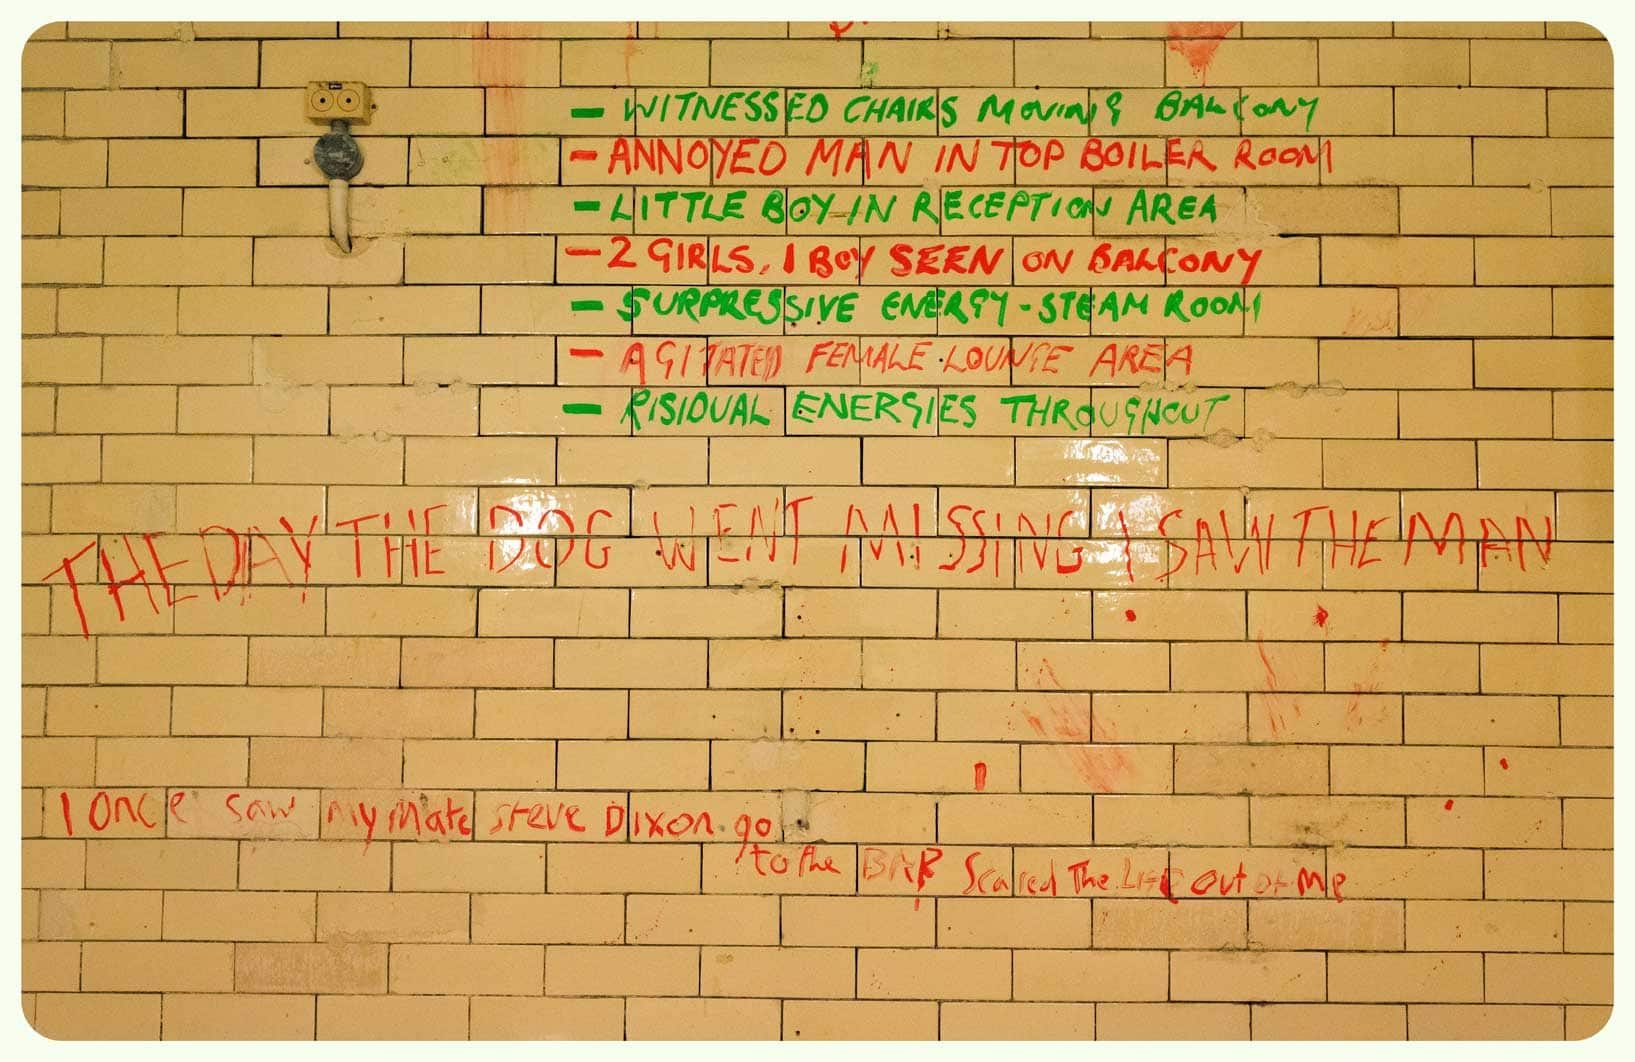 - WITNESSED CHAIRS MOVING BALCONY
- ANNOYED MAN IN TOP BOILER ROOM
- LITTLE BOY IN RECEPTION AREA
- 2 GIRLS, 1 BOY SEEN ON BALCONY
- SURPRESSIVE ENERGY - STEAM ROOM
- AGITATED FEMALE LOUNGE AREA
- RISIDUAL ENERGIES THROUGHOUT
THE DAY THE DOG WENT MISSING I SAW THE MAN
I once saw my Mate steve Dixon go
to the BAR Scared The LIFE Out OF Me